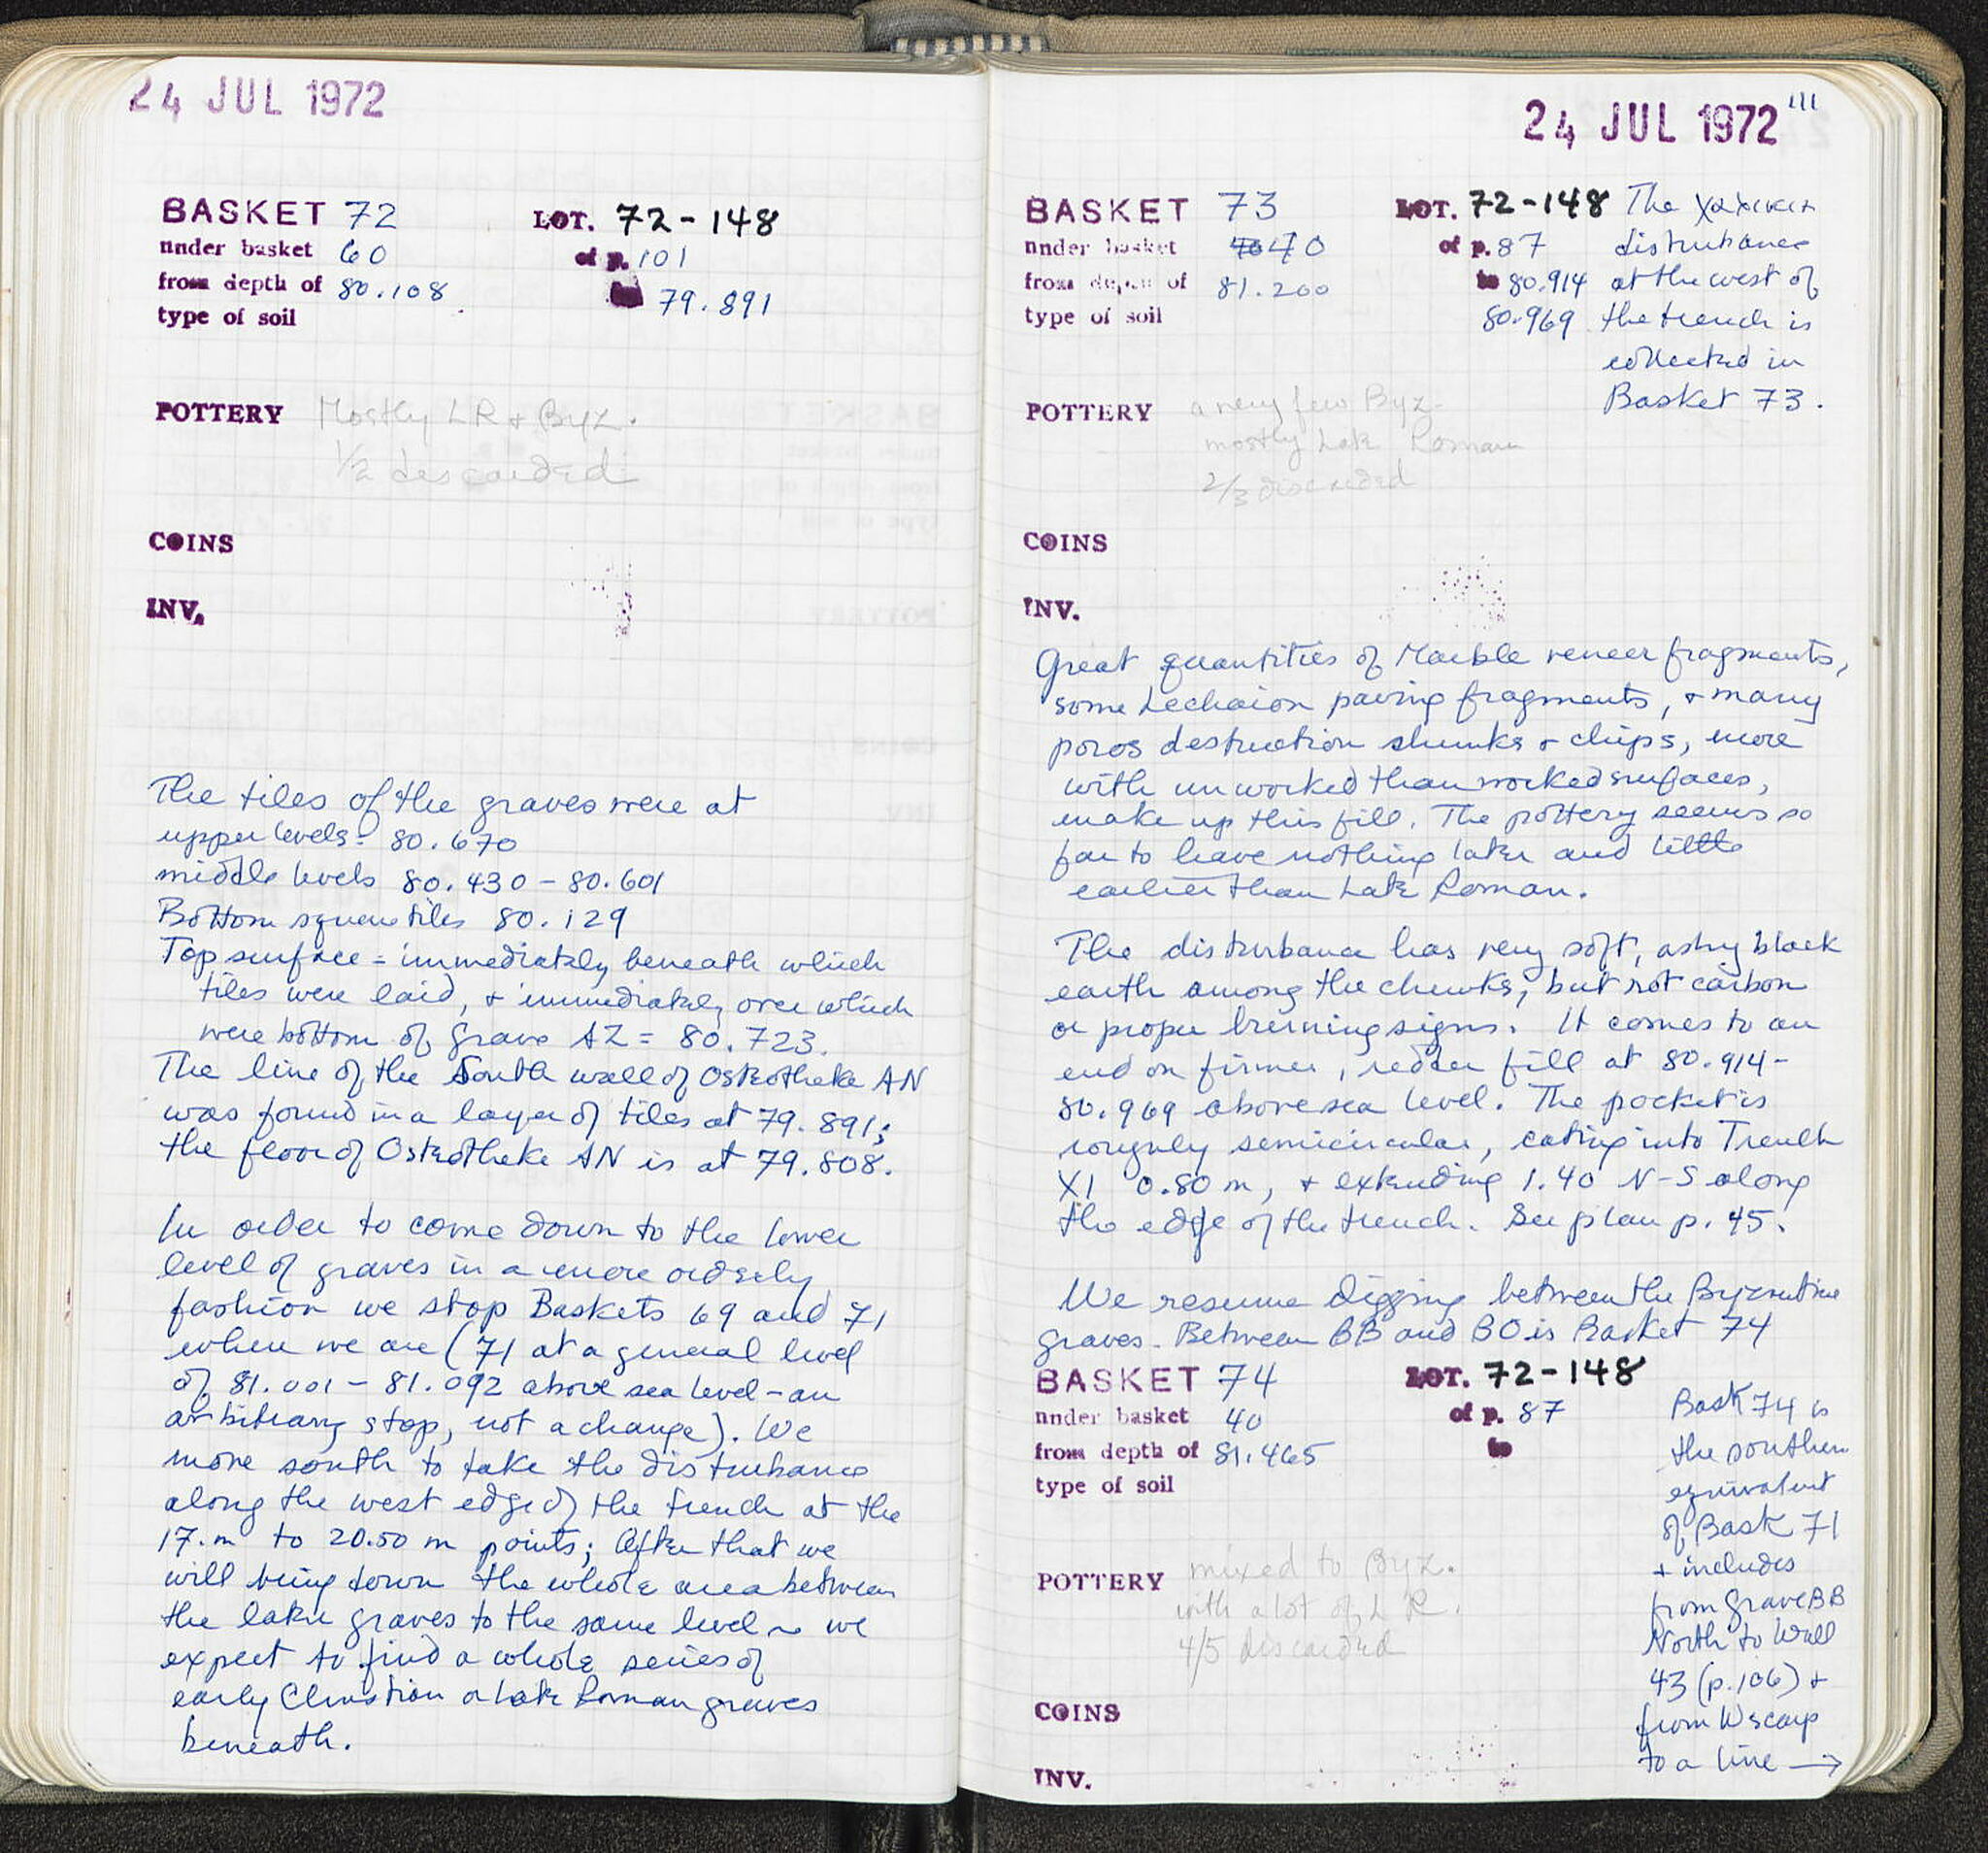 24 JUL 1972
BASKET 72 LOT. 72-148
under basket 60 of p. 101
from depth of 80.108 79.891
type of soil
POTTERY Mostly LR + Byz.
1/2 descarded
COINS
INV.
The tiles of the graves were at
upper levels = 80.670
middle levels 80.430 - 80.601
Bottom square tiles 80.129
Top surface = immediately beneath which
tiles were laid, + immediately over which
were bottom of Grave AZ = 80.723.
The line of the South wall of Osteotheke AN
was found in a layer of tiles at 79.891;
the floor of Osteotheke AN is at 79.808.
In order to come down to the lower
level of graves in a more orderly
fashion we stop Baskets 69 and 71
where we are (71 at a general level
of 81.001 - 81.092 above sea level - an
arbitrary stop, not a change). We
move south to take the disturbance
along the west edge of the trench at the
17.m to 20.50 m points; After that we
will bring down the whole area between
the later graves to the same level ~ we
expect to find a whole series of
early Christian or Late Roman graves
beneath.
111
24 JUL 1972
BASKET 73 LOT. 72-148
under basket 40 of p. 87
from depth of 81.200 to 80.914
80.969
type of soil
The
disturbance
at the west of
the trench is
collected in
Basket 73.
POTTERY a very few Byz.
mostly Late Roman
2/3 discarded
COINS
INV.
Great quantities of Marble veneer fragments,
some Lechaion paving fragments, + many
poros destruction chunks + chips, more
with unworked than worked surfaces,
make up this fill. The pottery seems so
far to have nothing later and little
earlier than Late Roman.
The disturbance has very soft, ashy black
earth among the chunks, but not carbon
or proper burning signs. It comes to an
end on firmer, redder fill at 80.914-
80.969 above sea level. The pocket is
roughly semicircular, cutting into Trench
XI 0.80 m, + extending 1.40 N-S along
the edge of the trench. See plan p. 45.
We resume digging between the Byzantine
graves. Between BB and BO is Basket 74
BASKET 74 LOT. 72-148
under basket 40 of p. 87
from depth of 81.465 to
type of soil
Bask 74 is
the southern
equivalent
of Bask 71
+ includes
from Grave BB
North to Wall
43 (p.106) +
from W scarp
to a line →
POTTERY mixed to Byz.
with a lot of L R.
4/5 discarded
COINS
INV.